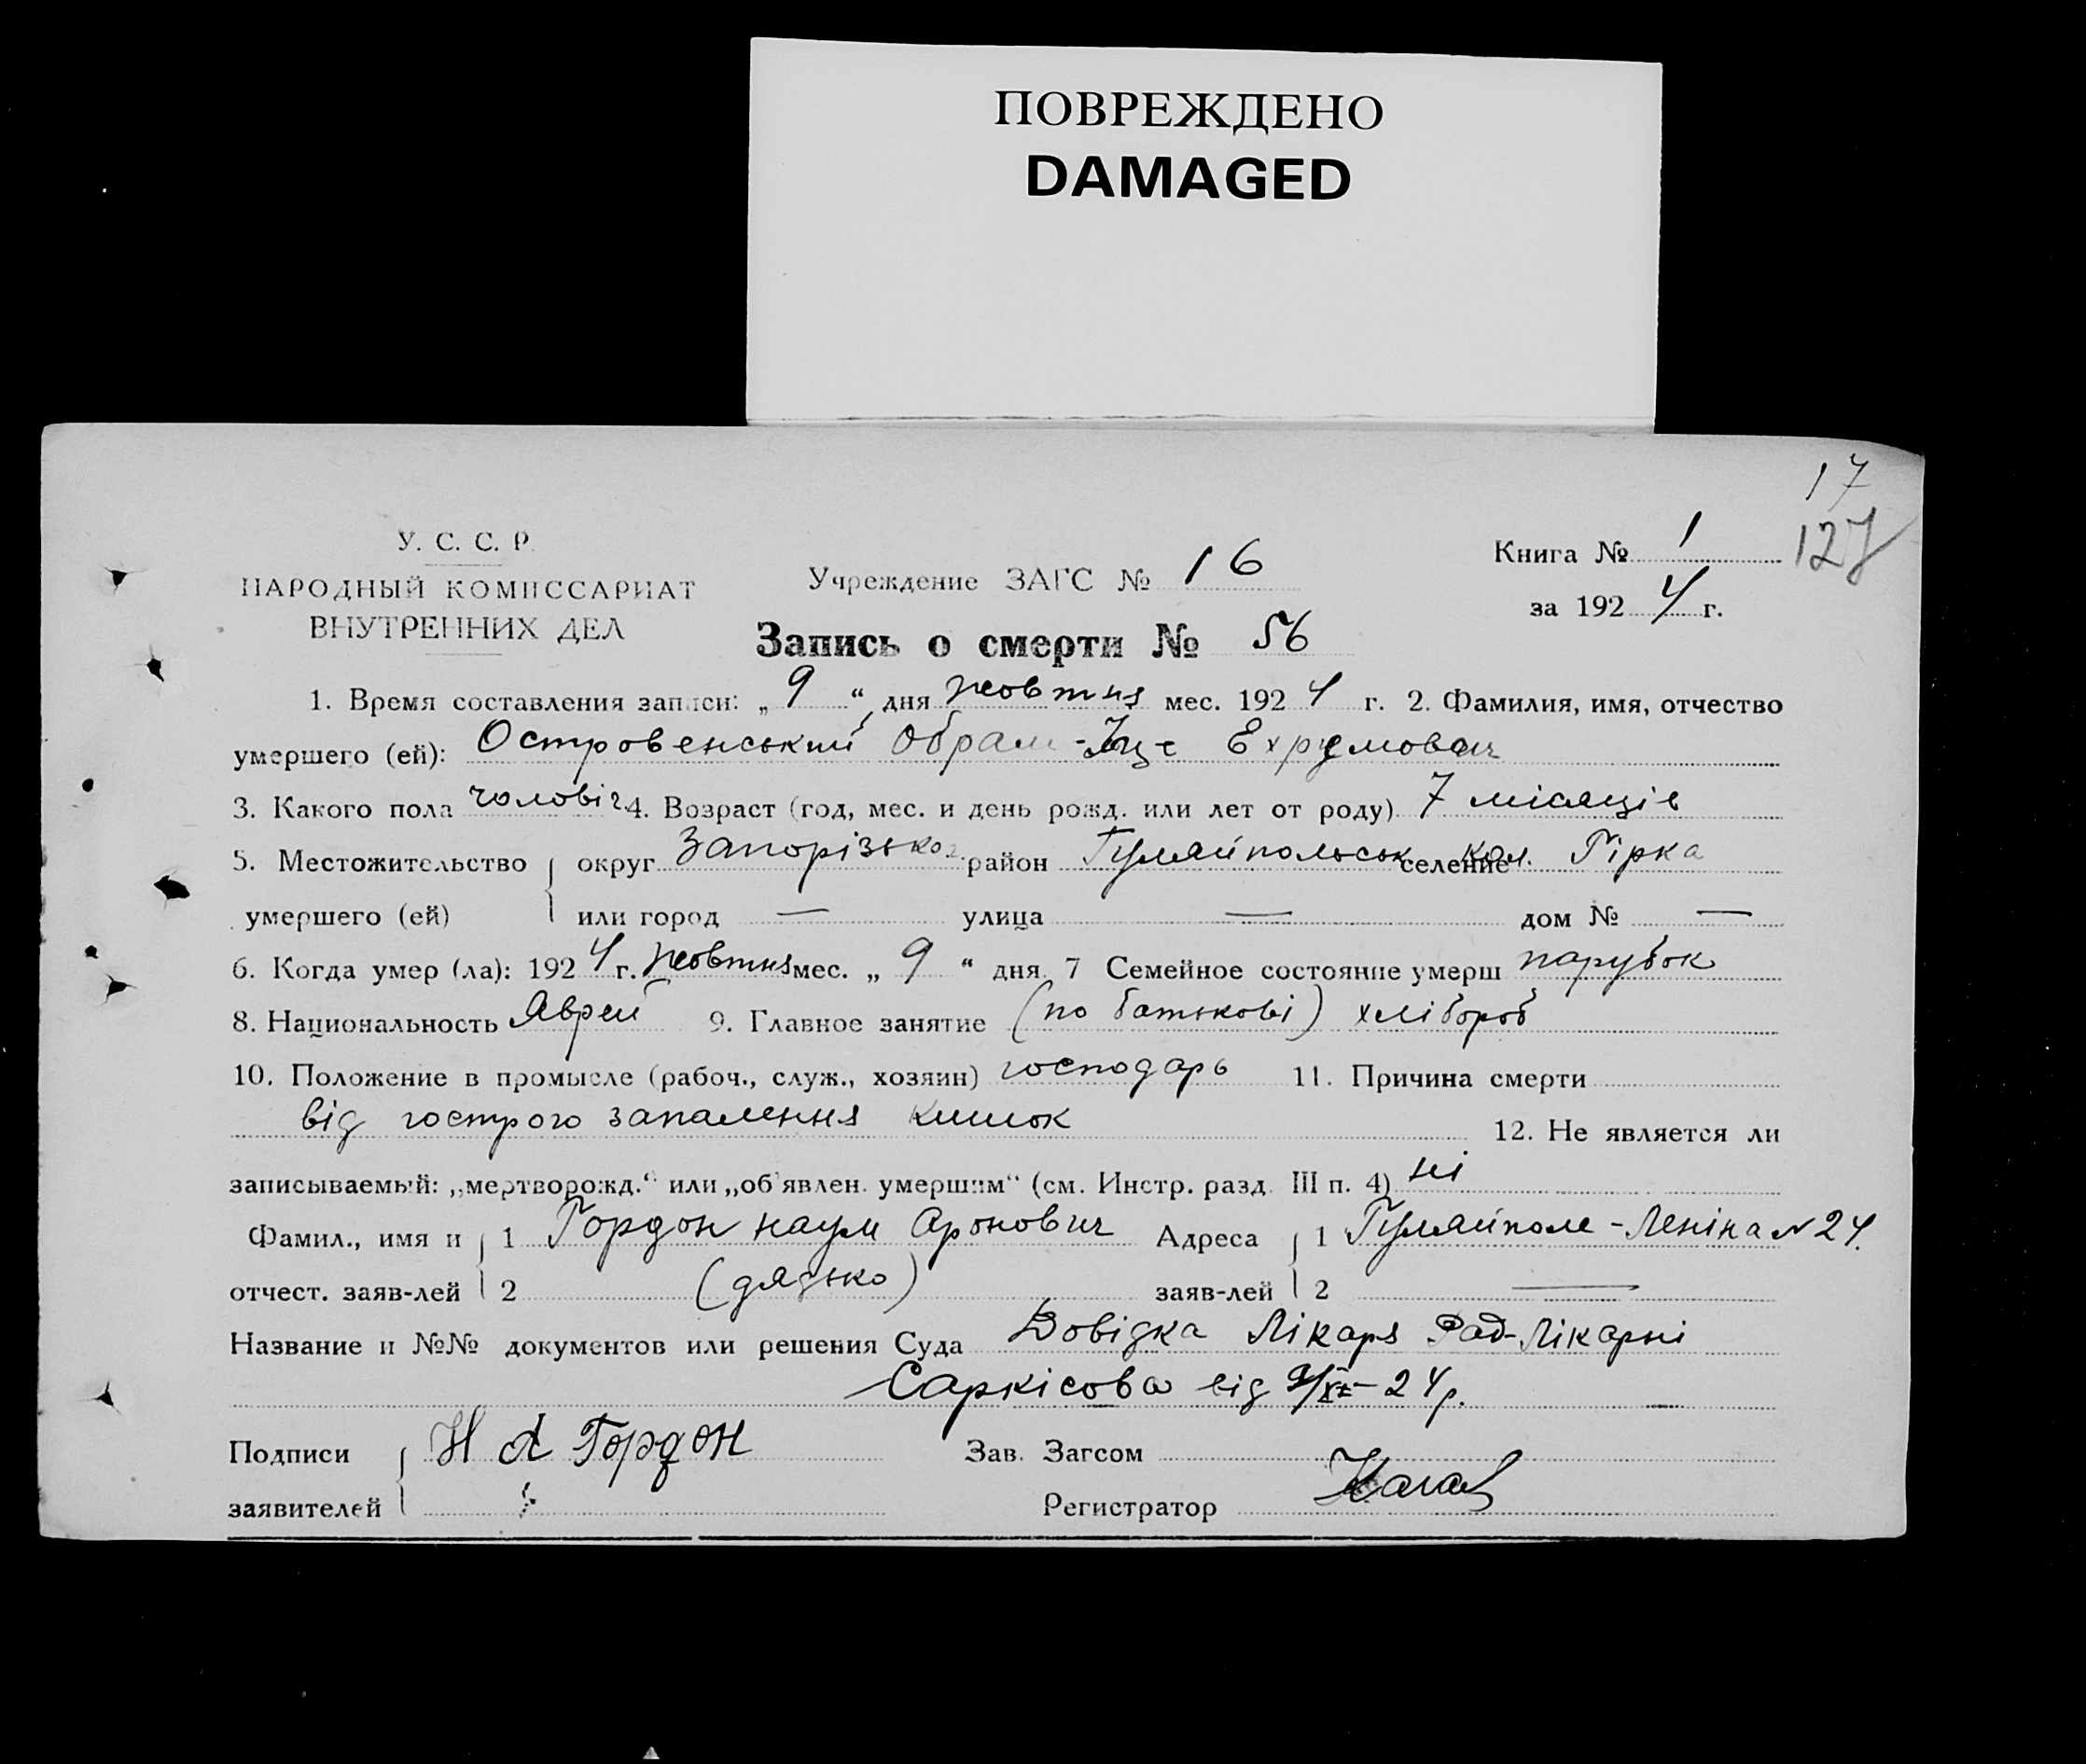 ПОВРЕЖДЕНО
DAMAGED
17
127
У. С. С. Р.
НАРОДНЫЙ КОМИССАРИАТ
ВНУТРЕННИХ ДЕЛ
Учреждение ЗАГС № 16
Книга № 1
за 1924 г.
Запись о смерти № 56
1. Время составления записи: „ 9 “ дня жовтня мес. 1924 г. 2. Фамилия, имя, отчество
умершего (ей): Островенський Обрам-Іцє
3. Какого пола чоловіч. 4. Возраст (год, мес. и день рожд. или лет от роду) 7 місяців
5. Местожительство округ Запорізько район Гуляйпольськ селение кол. Гірка
умершего (ей) или город — улица — дом № —
6. Когда умер (ла): 1924 г. жовтня мес. „ 9 “ дня 7 Семейное состояние умерш парубок
8. Национальность Яврей 9. Главное занятие (по батькові) хлібороб
10. Положение в промысле (рабоч., служ., хозяин) господарь 11. Причина смерти
від гострого запалення кишок 12. Не является ли
записываемый: „мертворожд.“ или „об'явлен. умершим“ (см. Инстр. разд. III п. 4) ні
Фамил., имя и 1 Гордон Наум Аронович Адреса 1 Гуляйполе - Леніна № 24.
отчест. заяв-лей 2 (дядько) заяв-лей 2 —
Название и №№ документов или решения Суда Довідка Лікаря Рад-Лікарні
Саркісова від 9/ 24р.
Подписи Н А Гордон Зав. Загсом
заявителей Регистратор